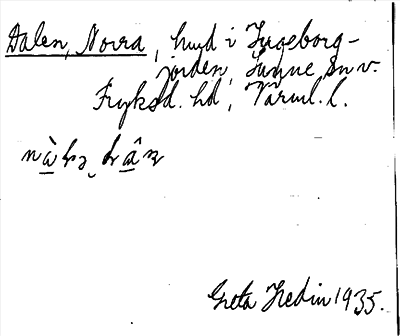 Dalen, Norra, hmd i Ingeborg-
jorden, Sunne sn v.
Fryksd. hd, Värml. l.
Greta Hedin 1935.